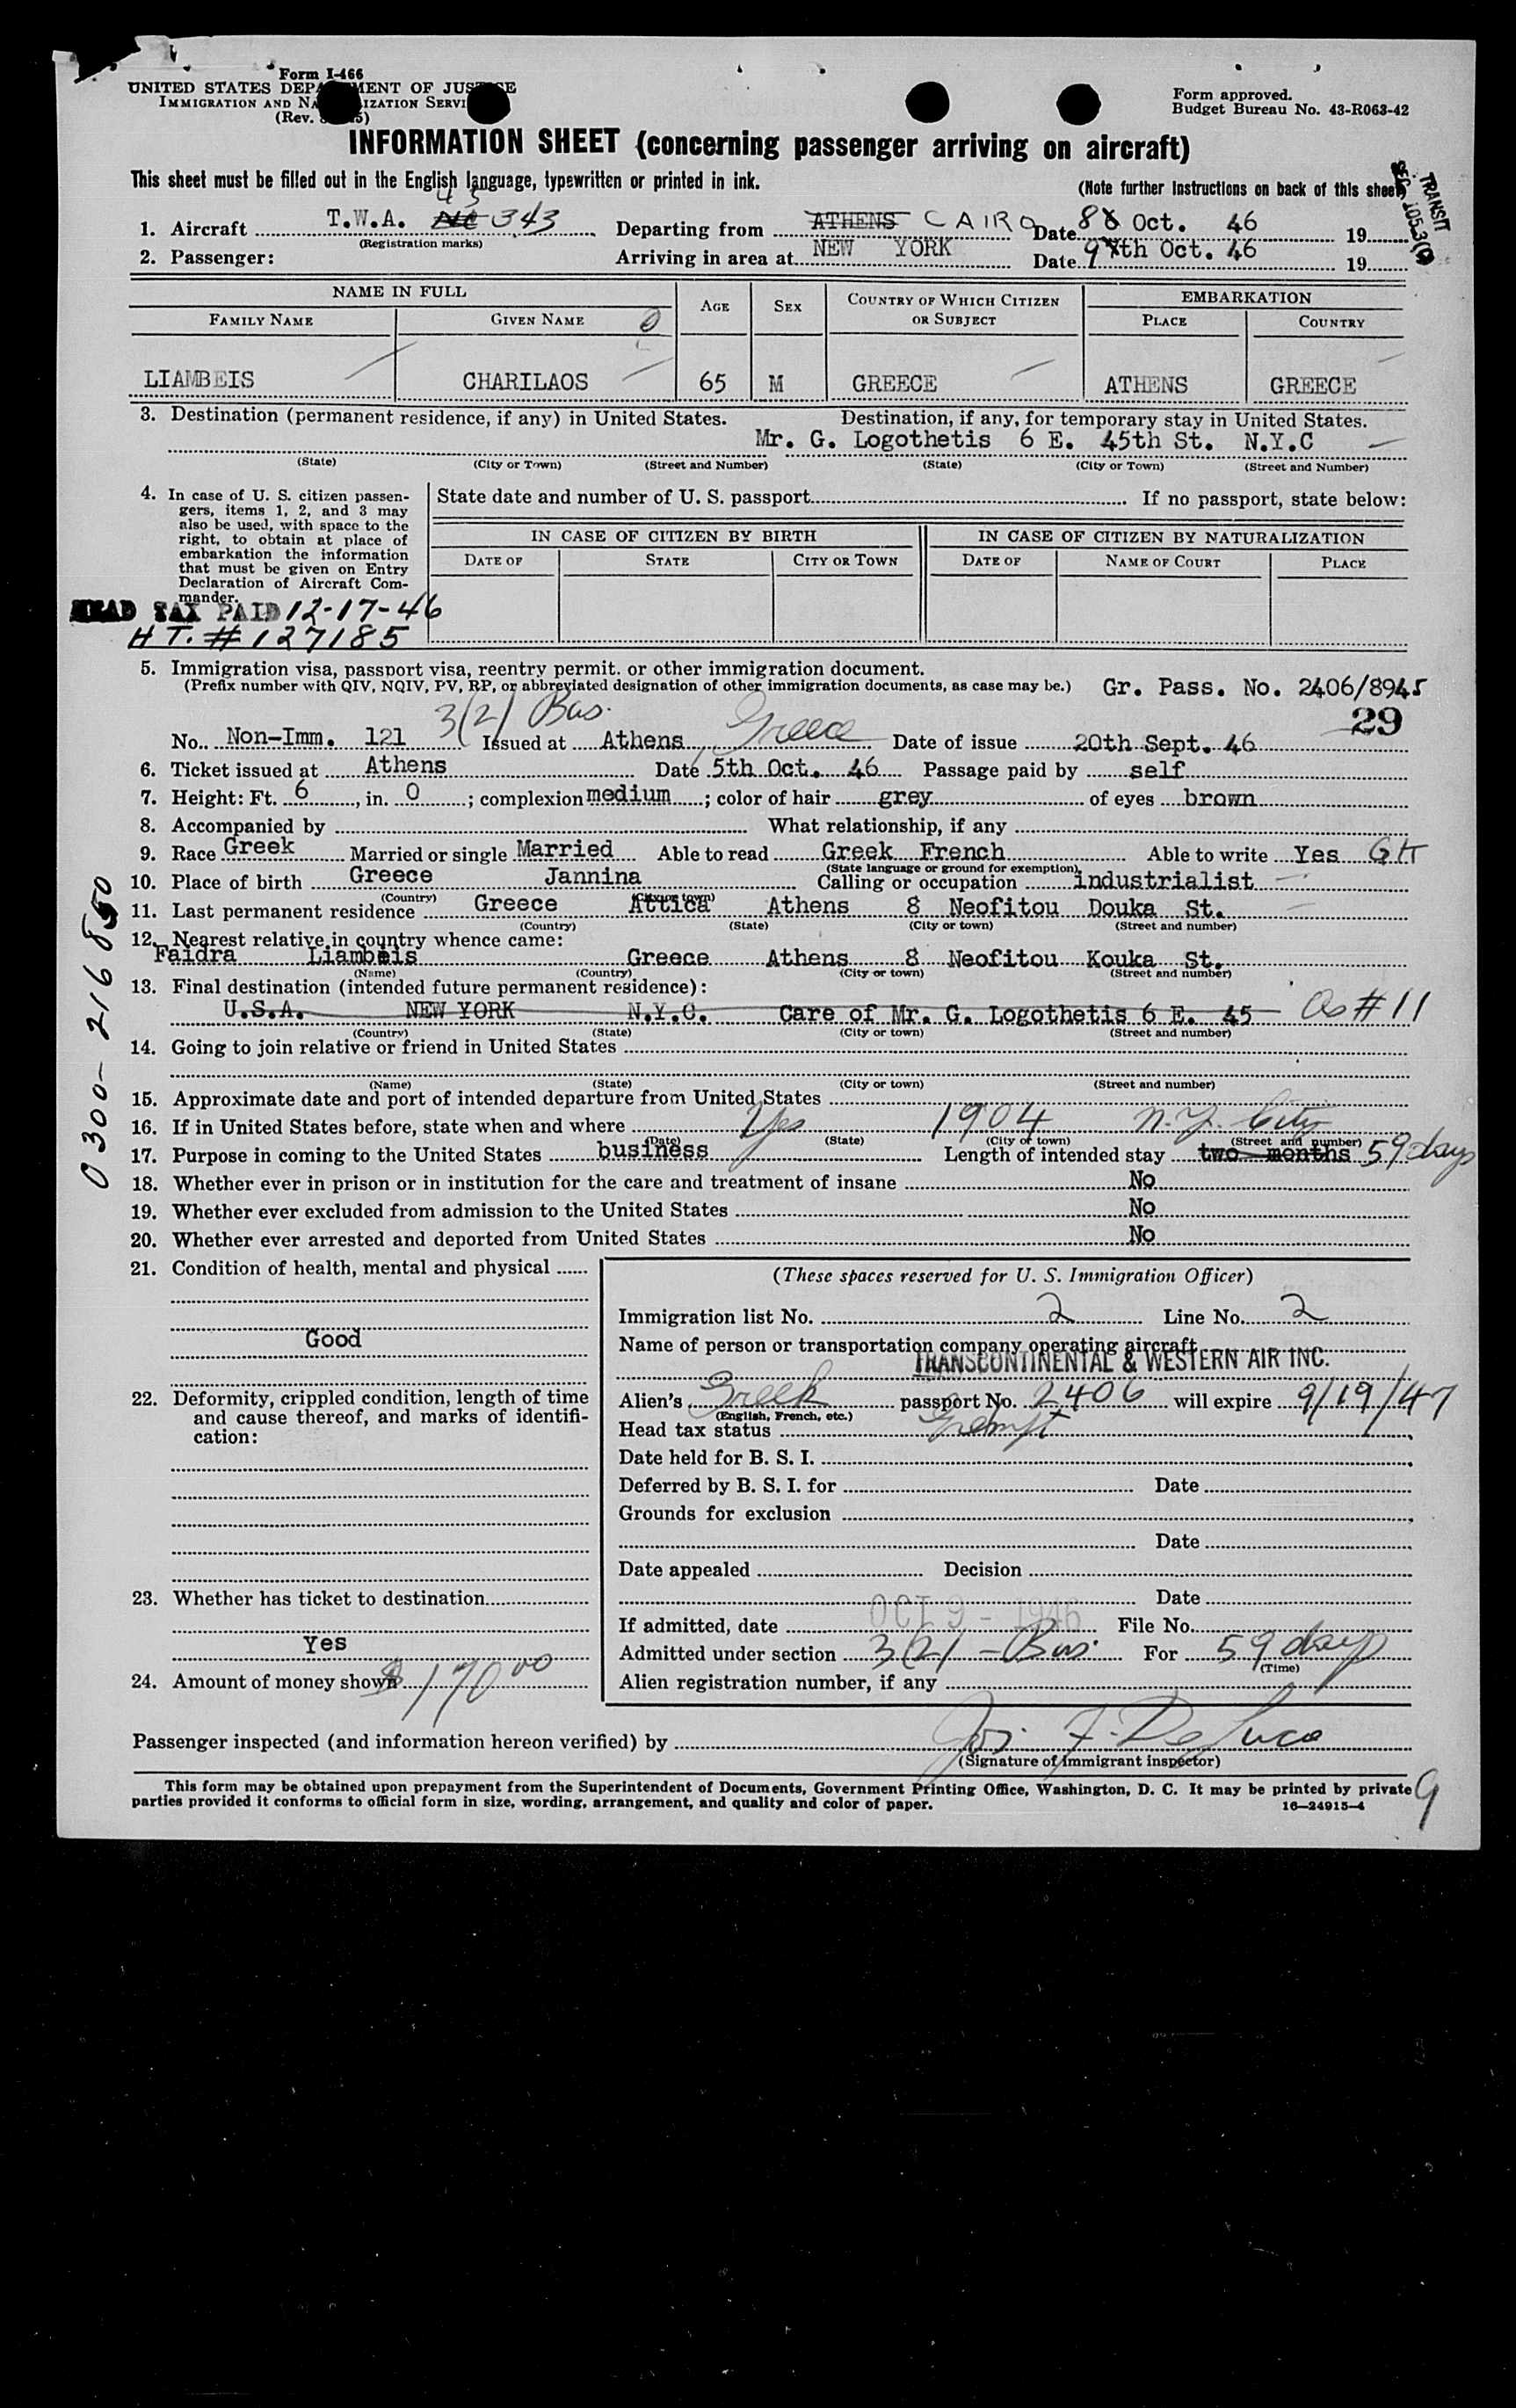 Form I-466
UNITED STATES DEPARTMENT OF JUSTICE
IMMIGRATION AND NATURALIZATION SERVICE
(Rev.
Form approved.
Budget Bureau No. 43-R063-42
INFORMATION SHEET (concerning passenger arriving on aircraft)
This sheet must be filled out in the English language, typewritten or printed in ink.
(Note further instructions on back of this sheet)
TRANSIT
43
1. Aircraft T.W.A. NC 343 Departing from ATHENS CAIRO Date 8 Oct. 46 19
(Registration marks)
2. Passenger: Arriving in area at NEW YORK Date 9th Oct. 46 19
NAME IN FULL AGE SEX COUNTRY OF WHICH CITIZEN OR SUBJECT EMBARKATION
FAMILY NAME GIVEN NAME PLACE COUNTRY
LIAMBEIS CHARILAOS 65 M GREECE ATHENS GREECE
3. Destination (permanent residence, if any) in United States. Destination, if any, for temporary stay in United States.
Mr. G. Logothetis 6 E. 45th St. N.Y.C
(State) (City or Town) (Street and Number) (State) (City or Town) (Street and Number)
4. In case of U. S. citizen passengers, items 1, 2, and 3 may also be used, with space to the right, to obtain at place of embarkation the information that must be given on Entry Declaration of Aircraft Commander.
State date and number of U. S. passport If no passport, state below:
IN CASE OF CITIZEN BY BIRTH IN CASE OF CITIZEN BY NATURALIZATION
DATE OF STATE CITY OR TOWN DATE OF NAME OF COURT PLACE
HEAD TAX PAID 12-17-46
H T. # 127185
5. Immigration visa, passport visa, reentry permit, or other immigration document.
(Prefix number with QIV, NQIV, PV, RP, or abbreviated designation of other immigration documents, as case may be.) Gr. Pass. No. 2406/8945
3(2) Bus. Greece 29
No. Non-Imm. 121 Issued at Athens Date of issue 20th Sept. 46
6. Ticket issued at Athens Date 5th Oct. 46 Passage paid by self
7. Height: Ft. 6, in. 0; complexion medium; color of hair grey of eyes brown
8. Accompanied by What relationship, if any
9. Race Greek Married or single Married Able to read Greek French Able to write Yes GH
(State language or ground for exemption)
10. Place of birth Greece Jannina Calling or occupation industrialist
(Country) (City or town)
11. Last permanent residence Greece Attica Athens 8 Neofitou Douka St.
(Country) (State) (City or town) (Street and number)
12. Nearest relative in country whence came:
Faidra Liambeis Greece Athens 8 Neofitou Kouka St.
(Name) (Country) (City or town) (Street and number)
13. Final destination (intended future permanent residence):
U.S.A. NEW YORK N.Y.C. Care of Mr. G. Logothetis 6 E. 45 As #11
(Country) (State) (City or town) (Street and number)
14. Going to join relative or friend in United States
(Name) (State) (City or town) (Street and number)
15. Approximate date and port of intended departure from United States
16. If in United States before, state when and where Yes 1904 N.Y. City
(Date) (State) (City or town) (Street and number)
17. Purpose in coming to the United States business Length of intended stay two months 59 days
18. Whether ever in prison or in institution for the care and treatment of insane No
19. Whether ever excluded from admission to the United States No
20. Whether ever arrested and deported from United States No
0300-216850
21. Condition of health, mental and physical
Good
22. Deformity, crippled condition, length of time and cause thereof, and marks of identification:
23. Whether has ticket to destination
Yes
24. Amount of money shown $170 00
(These spaces reserved for U. S. Immigration Officer)
Immigration list No. 2 Line No. 2
Name of person or transportation company operating aircraft
TRANSCONTINENTAL & WESTERN AIR INC.
Alien's Greek passport No. 2406 will expire 9/19/47
(English, French, etc.)
Head tax status Exempt
Date held for B. S. I.
Deferred by B. S. I. for Date
Grounds for exclusion
Date
Date appealed Decision
Date
If admitted, date OCT 9 - 1946 File No.
Admitted under section 3(2) - Bus. For 59 days
(Time)
Alien registration number, if any
Passenger inspected (and information hereon verified) by Jos. F. DeLuca
(Signature of immigrant inspector)
This form may be obtained upon prepayment from the Superintendent of Documents, Government Printing Office, Washington, D. C. It may be printed by private
parties provided it conforms to official form in size, wording, arrangement, and quality and color of paper.
16—24915-4
9